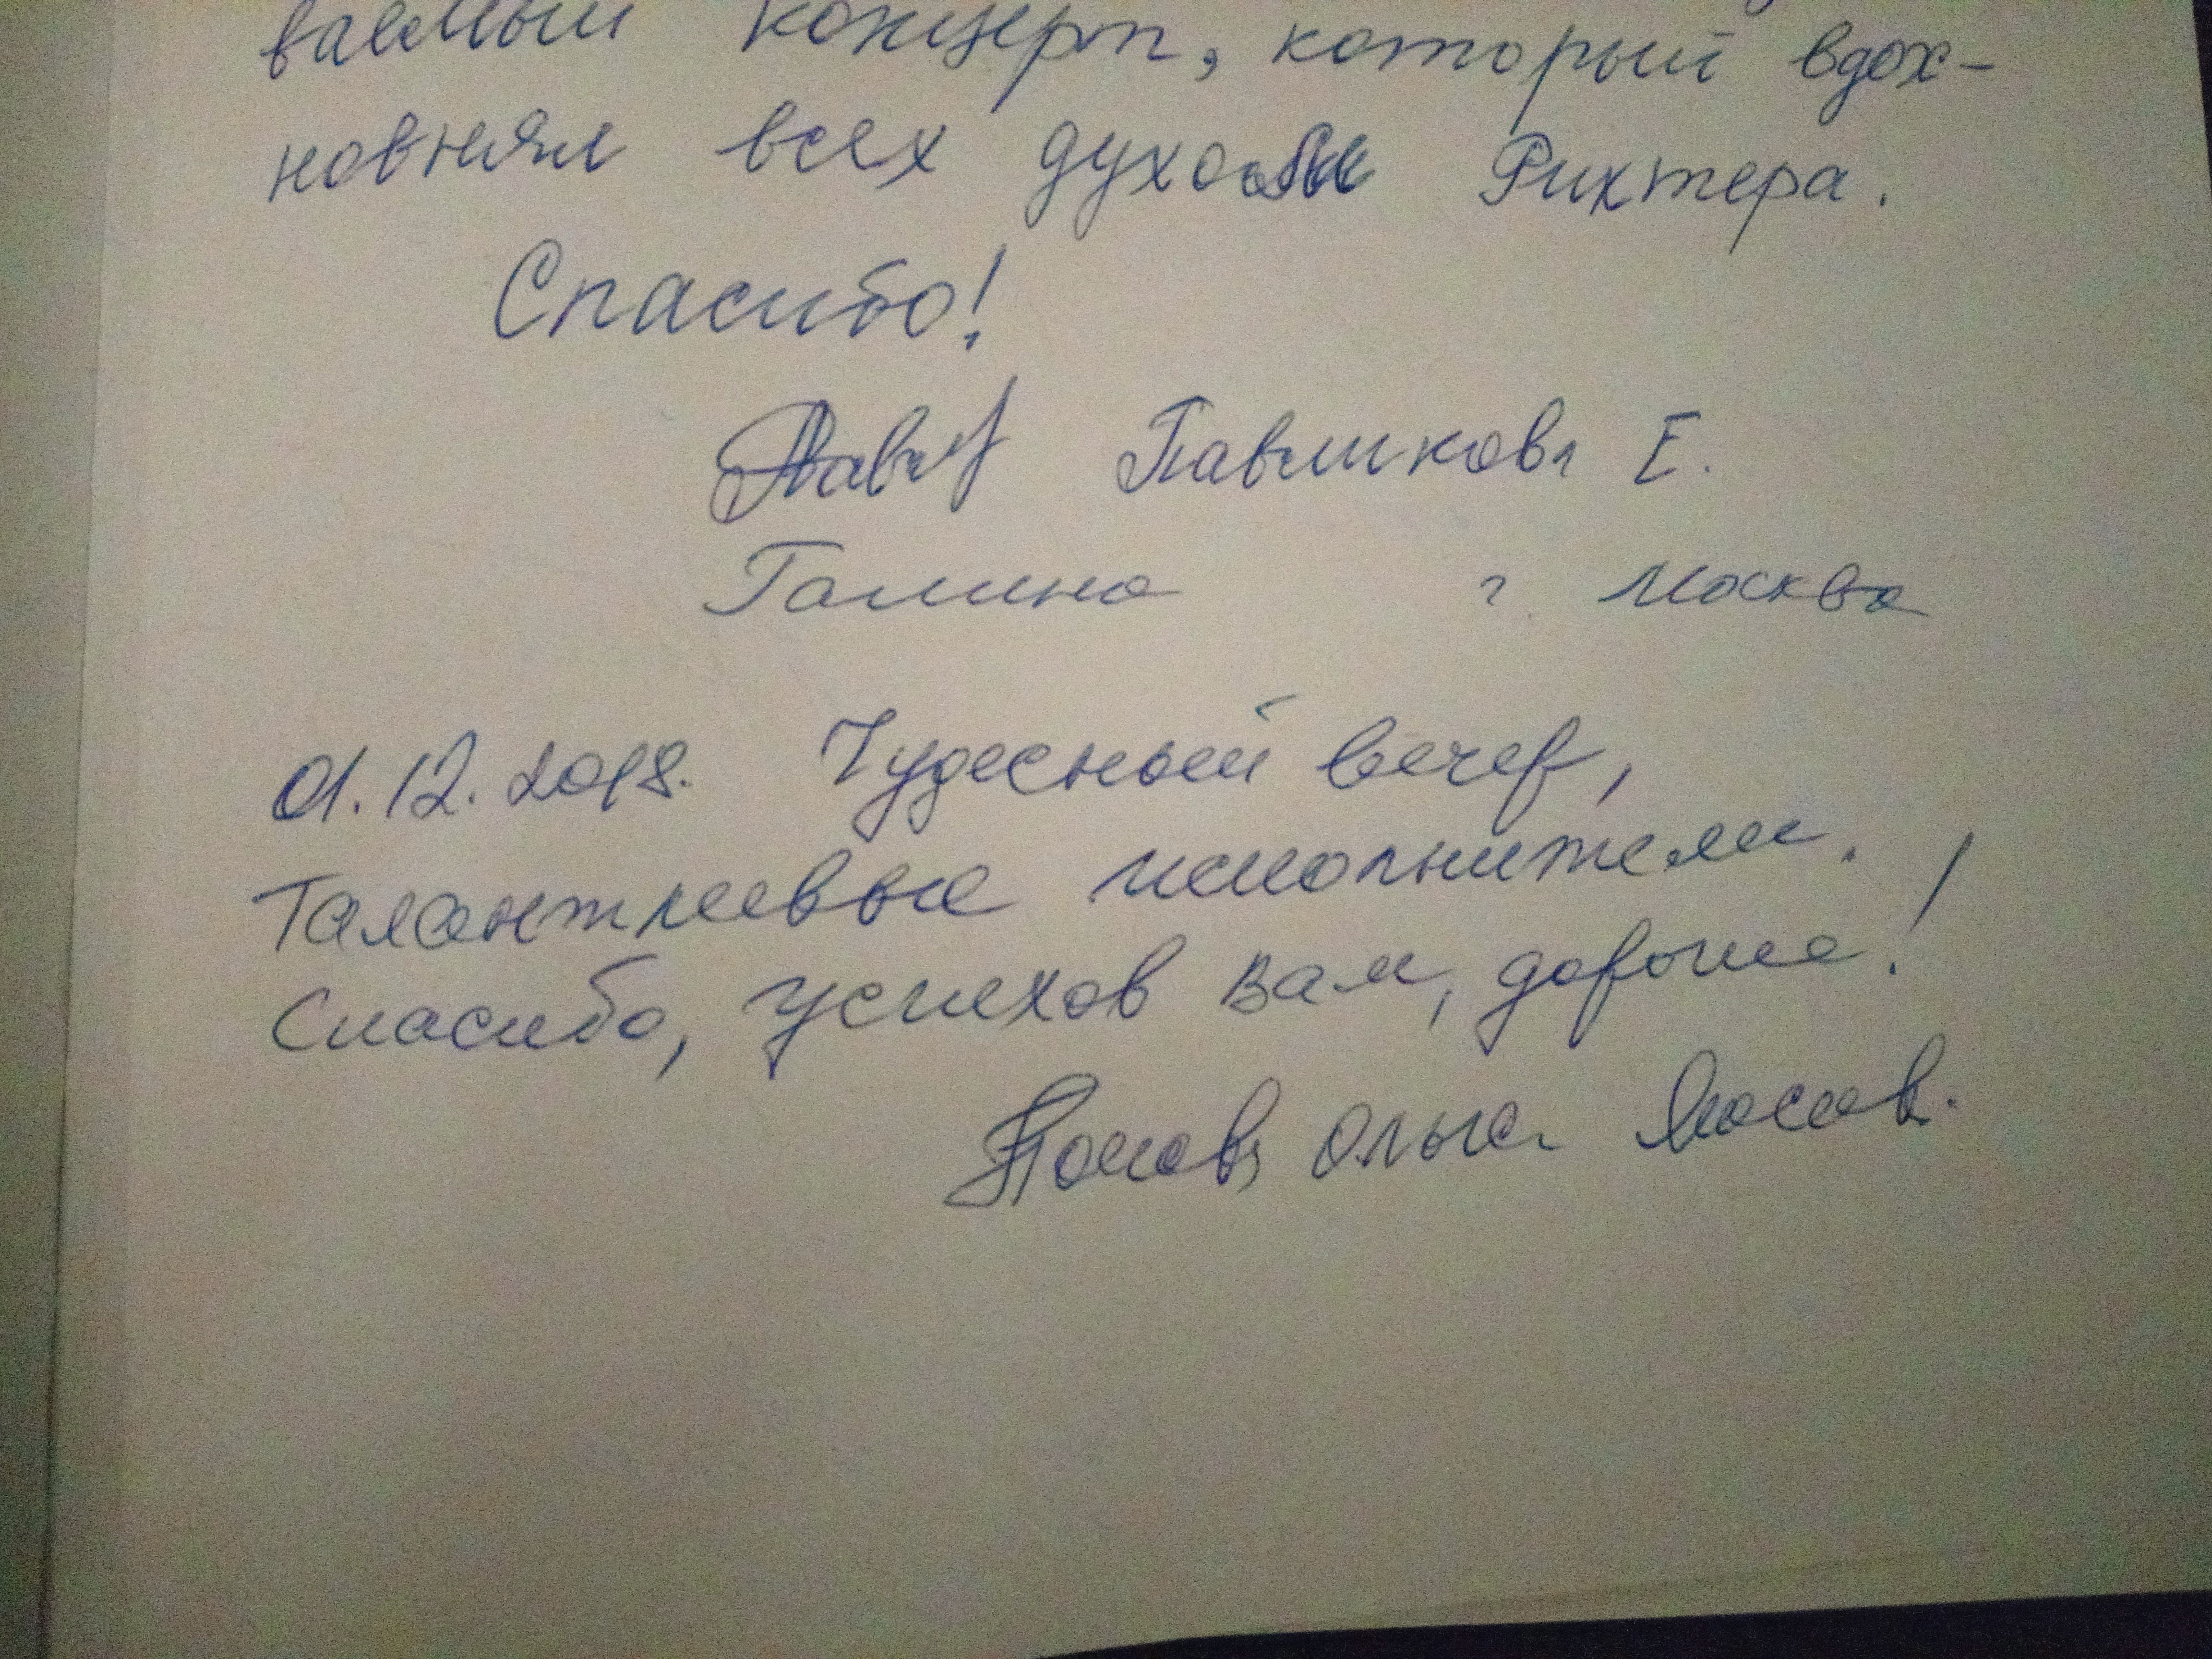 ваемый концерт, который вдох-
новнял всех духом Рихтера.
Спасибо!
Павликова Е.
Галина г. Москва
01.12.2018. Чудесный вечер,
Талантливые исполнители.
Спасибо, успехов Вам, дорогие!
Ольга